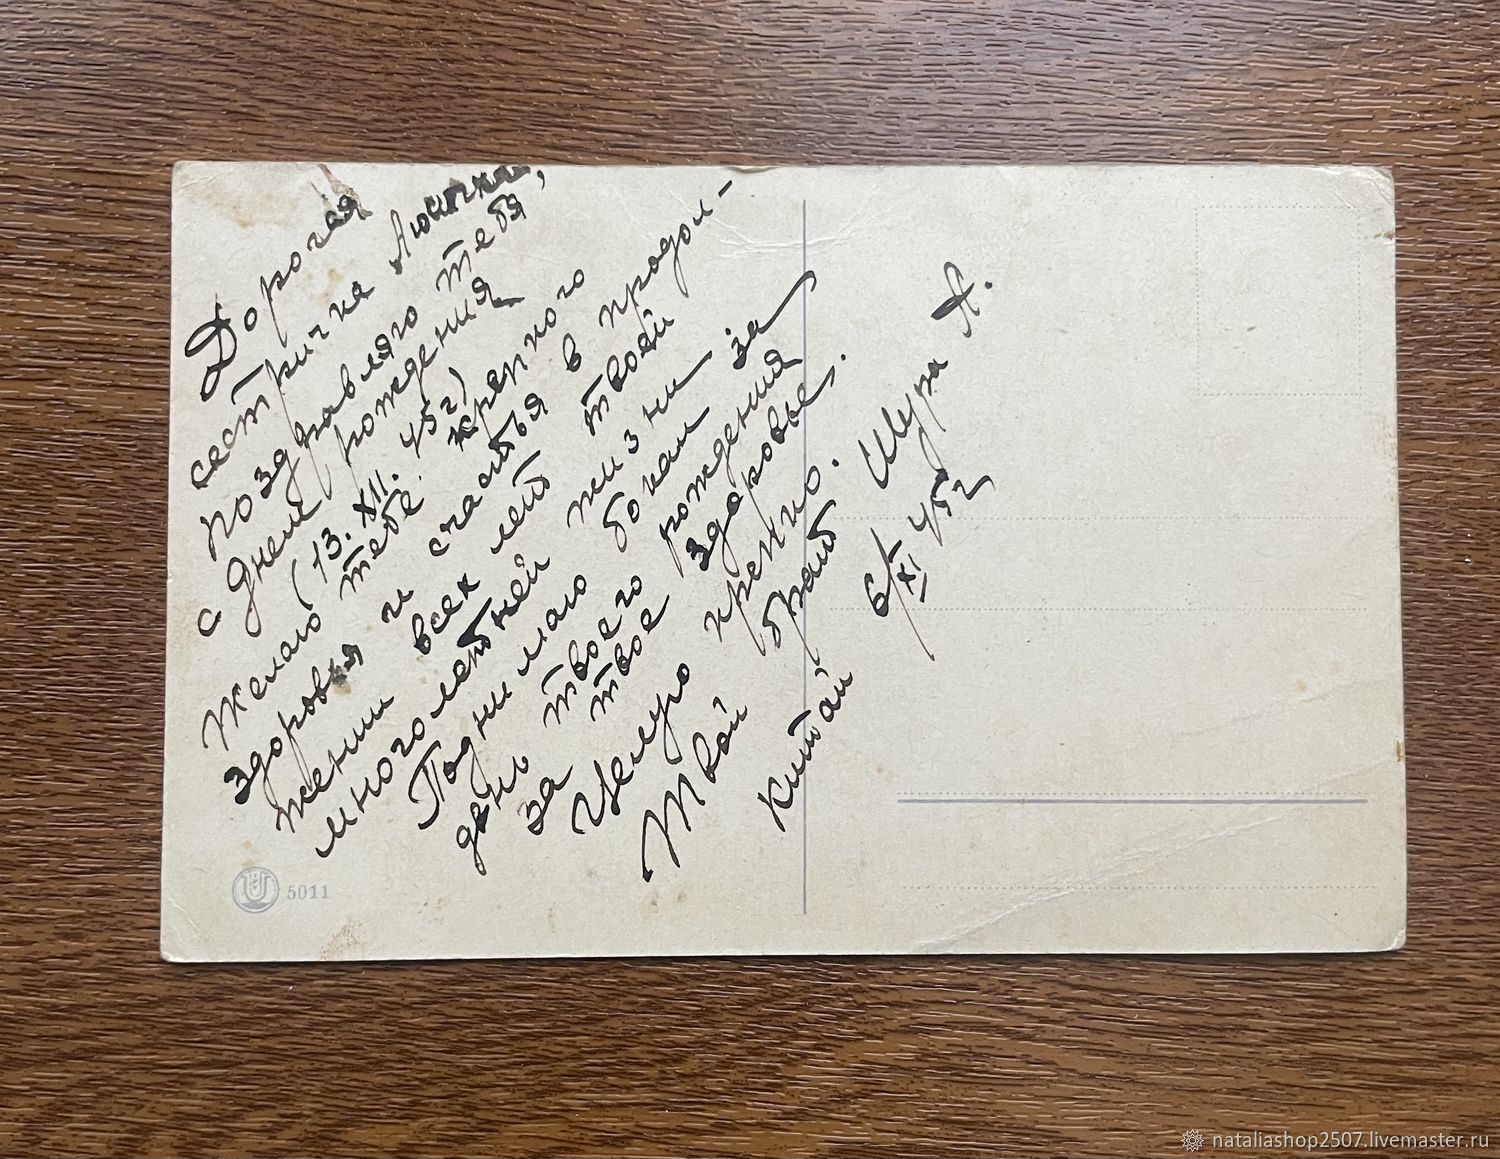 Дорогая
сестричка Люсичка,
поздравляю тебя
с днем рождения
(13. XII. 45 г)
Желаю тебе крепкого
здоровья и счастья в продол-
жении всех лет твоей
многолетней жизни
Поднимаю бокал за
день твоего рождения
за твое здоровье.
Целую крепко.
Твой брат Шура А.
Китай 6/XI 45 г
5011
nataliashop2507.livemaster.ru